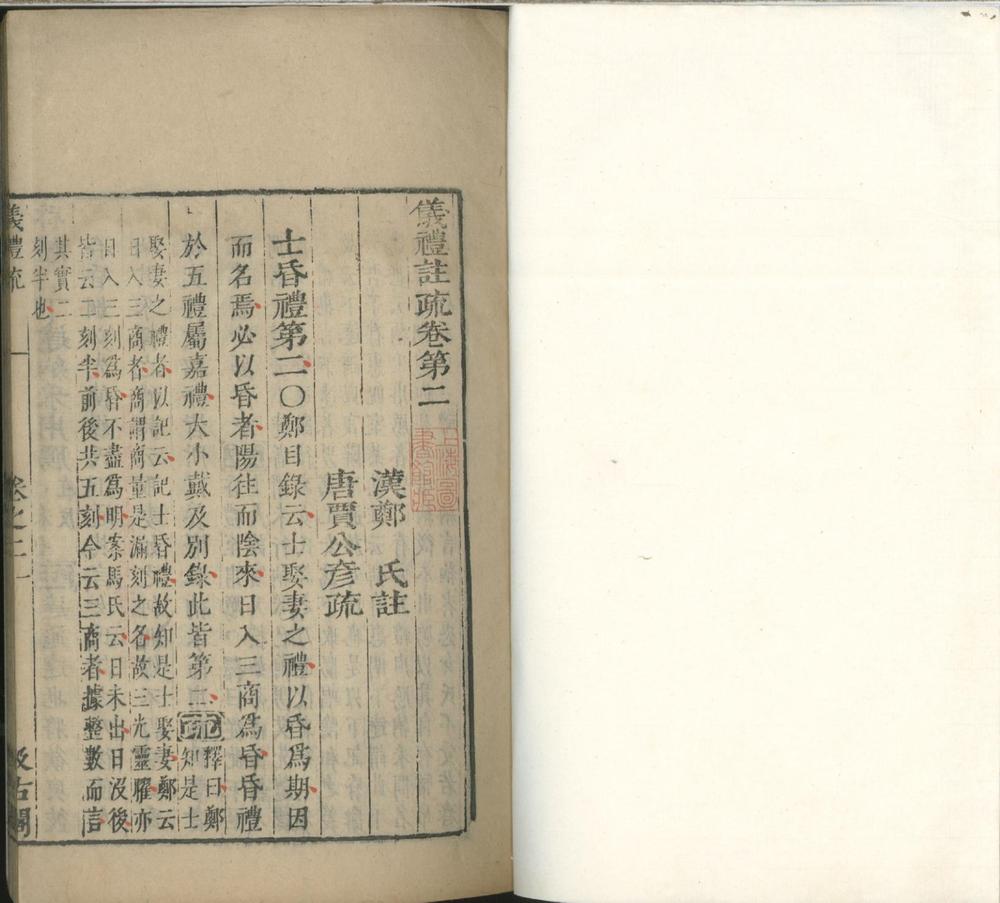 儀禮註疏卷第二
漢鄭　氏註
唐賈公彥疏
士昏禮第二〇鄭目錄云士娶妻之禮以昏爲期因
而名焉必以昏者陽往而陰來日入三商爲昏昏禮
於五禮屬嘉禮大小戴及別錄此皆第二疏釋曰鄭
知是士
娶妻之禮者以記云記士昏禮故知是士娶妻鄭云
日入三商者商謂商量是漏刻之名故三光靈曜亦
日入三刻爲昏不盡爲明案馬氏云日未出日沒後
皆云二刻半前後共五刻今云三商者據整數而言
其實二
刻半也
儀禮疏
卷之二
一
汲古閣